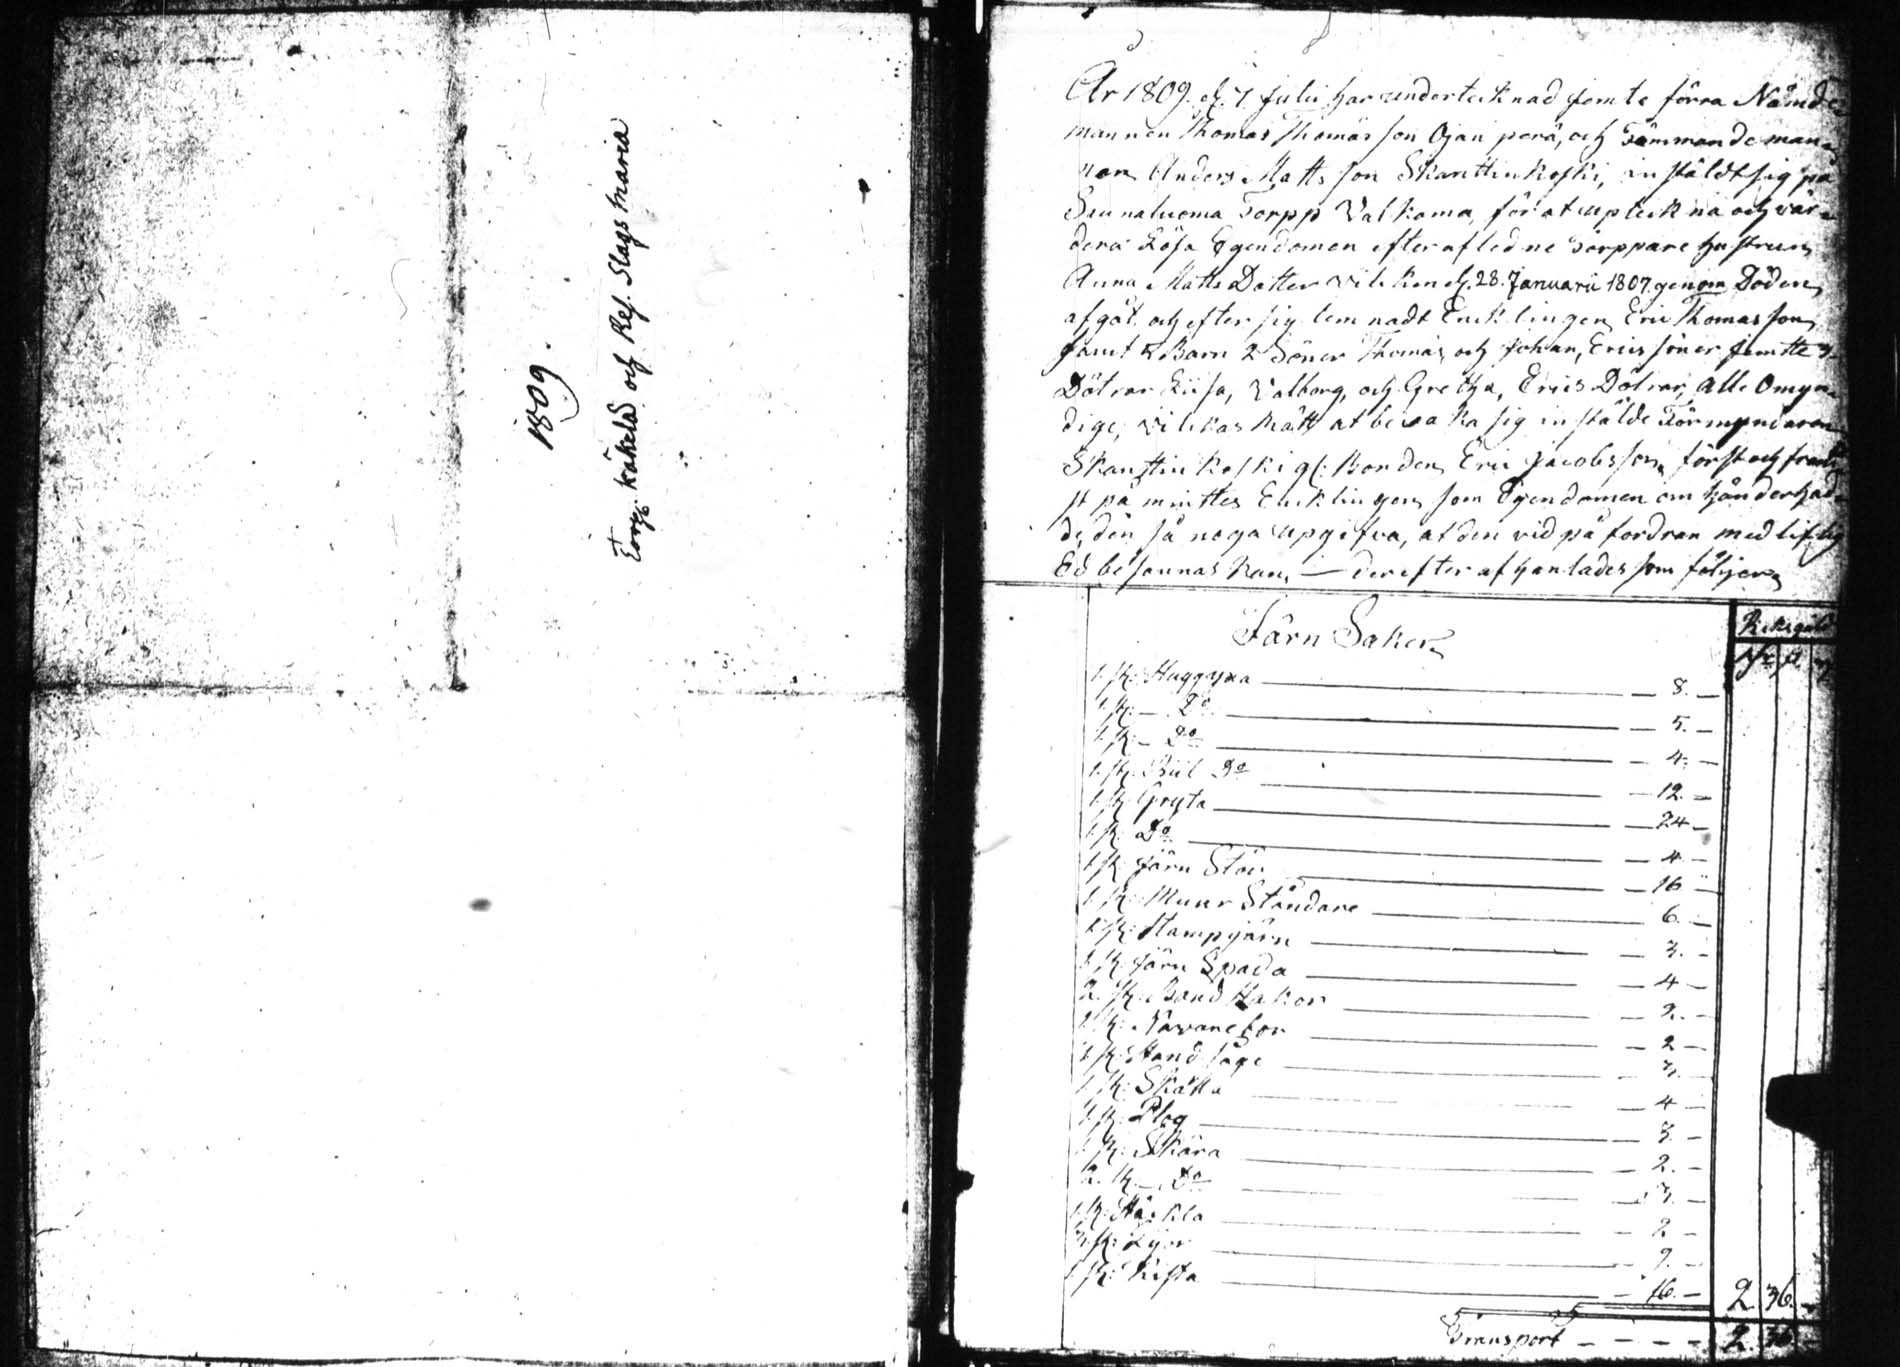 1809.
Torp. kåheld och Ref. Slags Maria
År 1809. d. 7 Julii har undertecknad jemte förra Nämde
mannen Thomas Thomasson Ojan perä, och Tämmande man-
nen Anders Mattsson Skanttinkoski, instäldt sig på
Saunaluoma Torpp Valkama, för at upteckna och vär-
dera Lösa Egendomen efter afledne Torppare hustrun
Anna Matts Dotter vilken d. 28. Januarii 1807 genom Döden
afgåt och efter sig lemnadt Encklingen Eric Thomasson
samt 5 Barn 2 Söner Thomas och Johan, Ericssöner jemtte 3.
Dötrar Liisa, Valborg, och Gretha, Erics Dötrar, alle Omyn-
dige, vilckas Rätt at bevaka sig instälde Förmyndaren
Skanttinkoski gl: Bonden Eric Jacobsson, först och främ
st påminttes Encklingen som Egendomen om händerhad
de, den så noga upgifva, at den vid påfordran med liflig
Ed besannas kan, — derefter afhanlades som följer
Järn Saker Riksgäld
1. st: Huggyxa — 8. —
1. st: — Do — 5. —
1. st: — Do — 4. —
1. st: Biil Do — 12. —
1. st: Gryta — 24 —
1. st: Do — 4 —
1. st: Järn Stör — 16 —
1. st: Muur Ståndare — 6. —
1. st: Stampjärn — 3. —
1. st: Järn Spada — 4 —
2. st: Band Hakor — 2. —
2. st: Navare bor — 2 —
1. st: Handsåge — 3. —
1. st: Skätta — 4 —
1. st: Plog — 3. —
1. st: Skära — 2. —
2. st: — Do — 3. —
1. st: Häckla — 2 —
3. st: Lijor — 9. —
1. st: Kista — 16. — 2 36. —
Transport — — — 2. 36